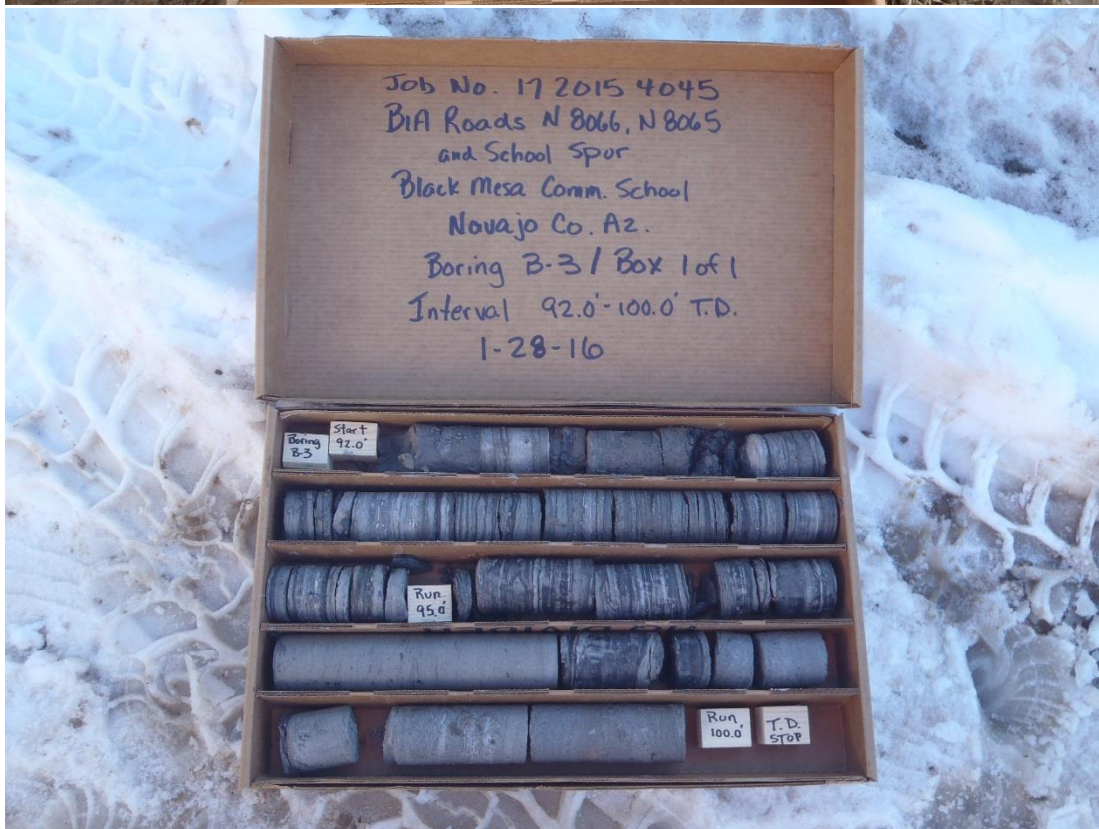 Job No. 17 2015 4045
BIA Roads N 8066, N 8065
and School Spur
Black Mesa Comm. School
Novajo Co. Az.
Boring B-3 / Box 1 of 1
Interval 92.0'-100.0' T.D.
1-28-16
Boring
B-3
Start
92.0'
Run
95.0'
Run
100.0'
T.D.
STOP